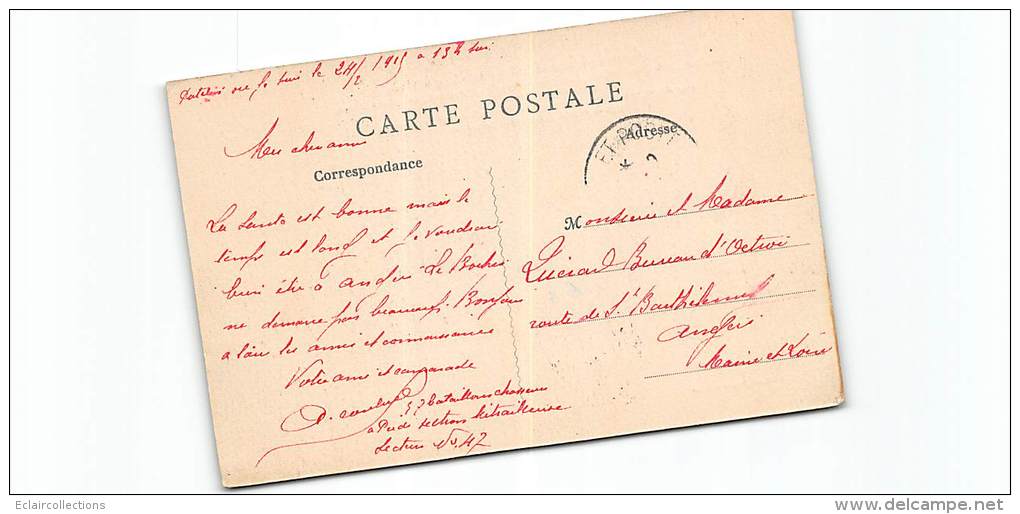 ou je suis le 24/2 1915 a 13h
CARTE POSTALE
Mes cher amis
Correspondance
Adresse
ET POST
La santé est bonne mais le
temps est long et je voudrai
bien être à Angers Le Boche
ne démarre pas beaucoup. Bonjour
a tous les amis et connaissances
Votre ami et camarade
Bataillons chasseurs
a Pied section Mitrailleuse
Secteur No 47
Monsieur et Madame
Bureau d'Octroi
route de St Barthélemy
Angers
Maine et Loire
Eclaircollections
delcampe.net